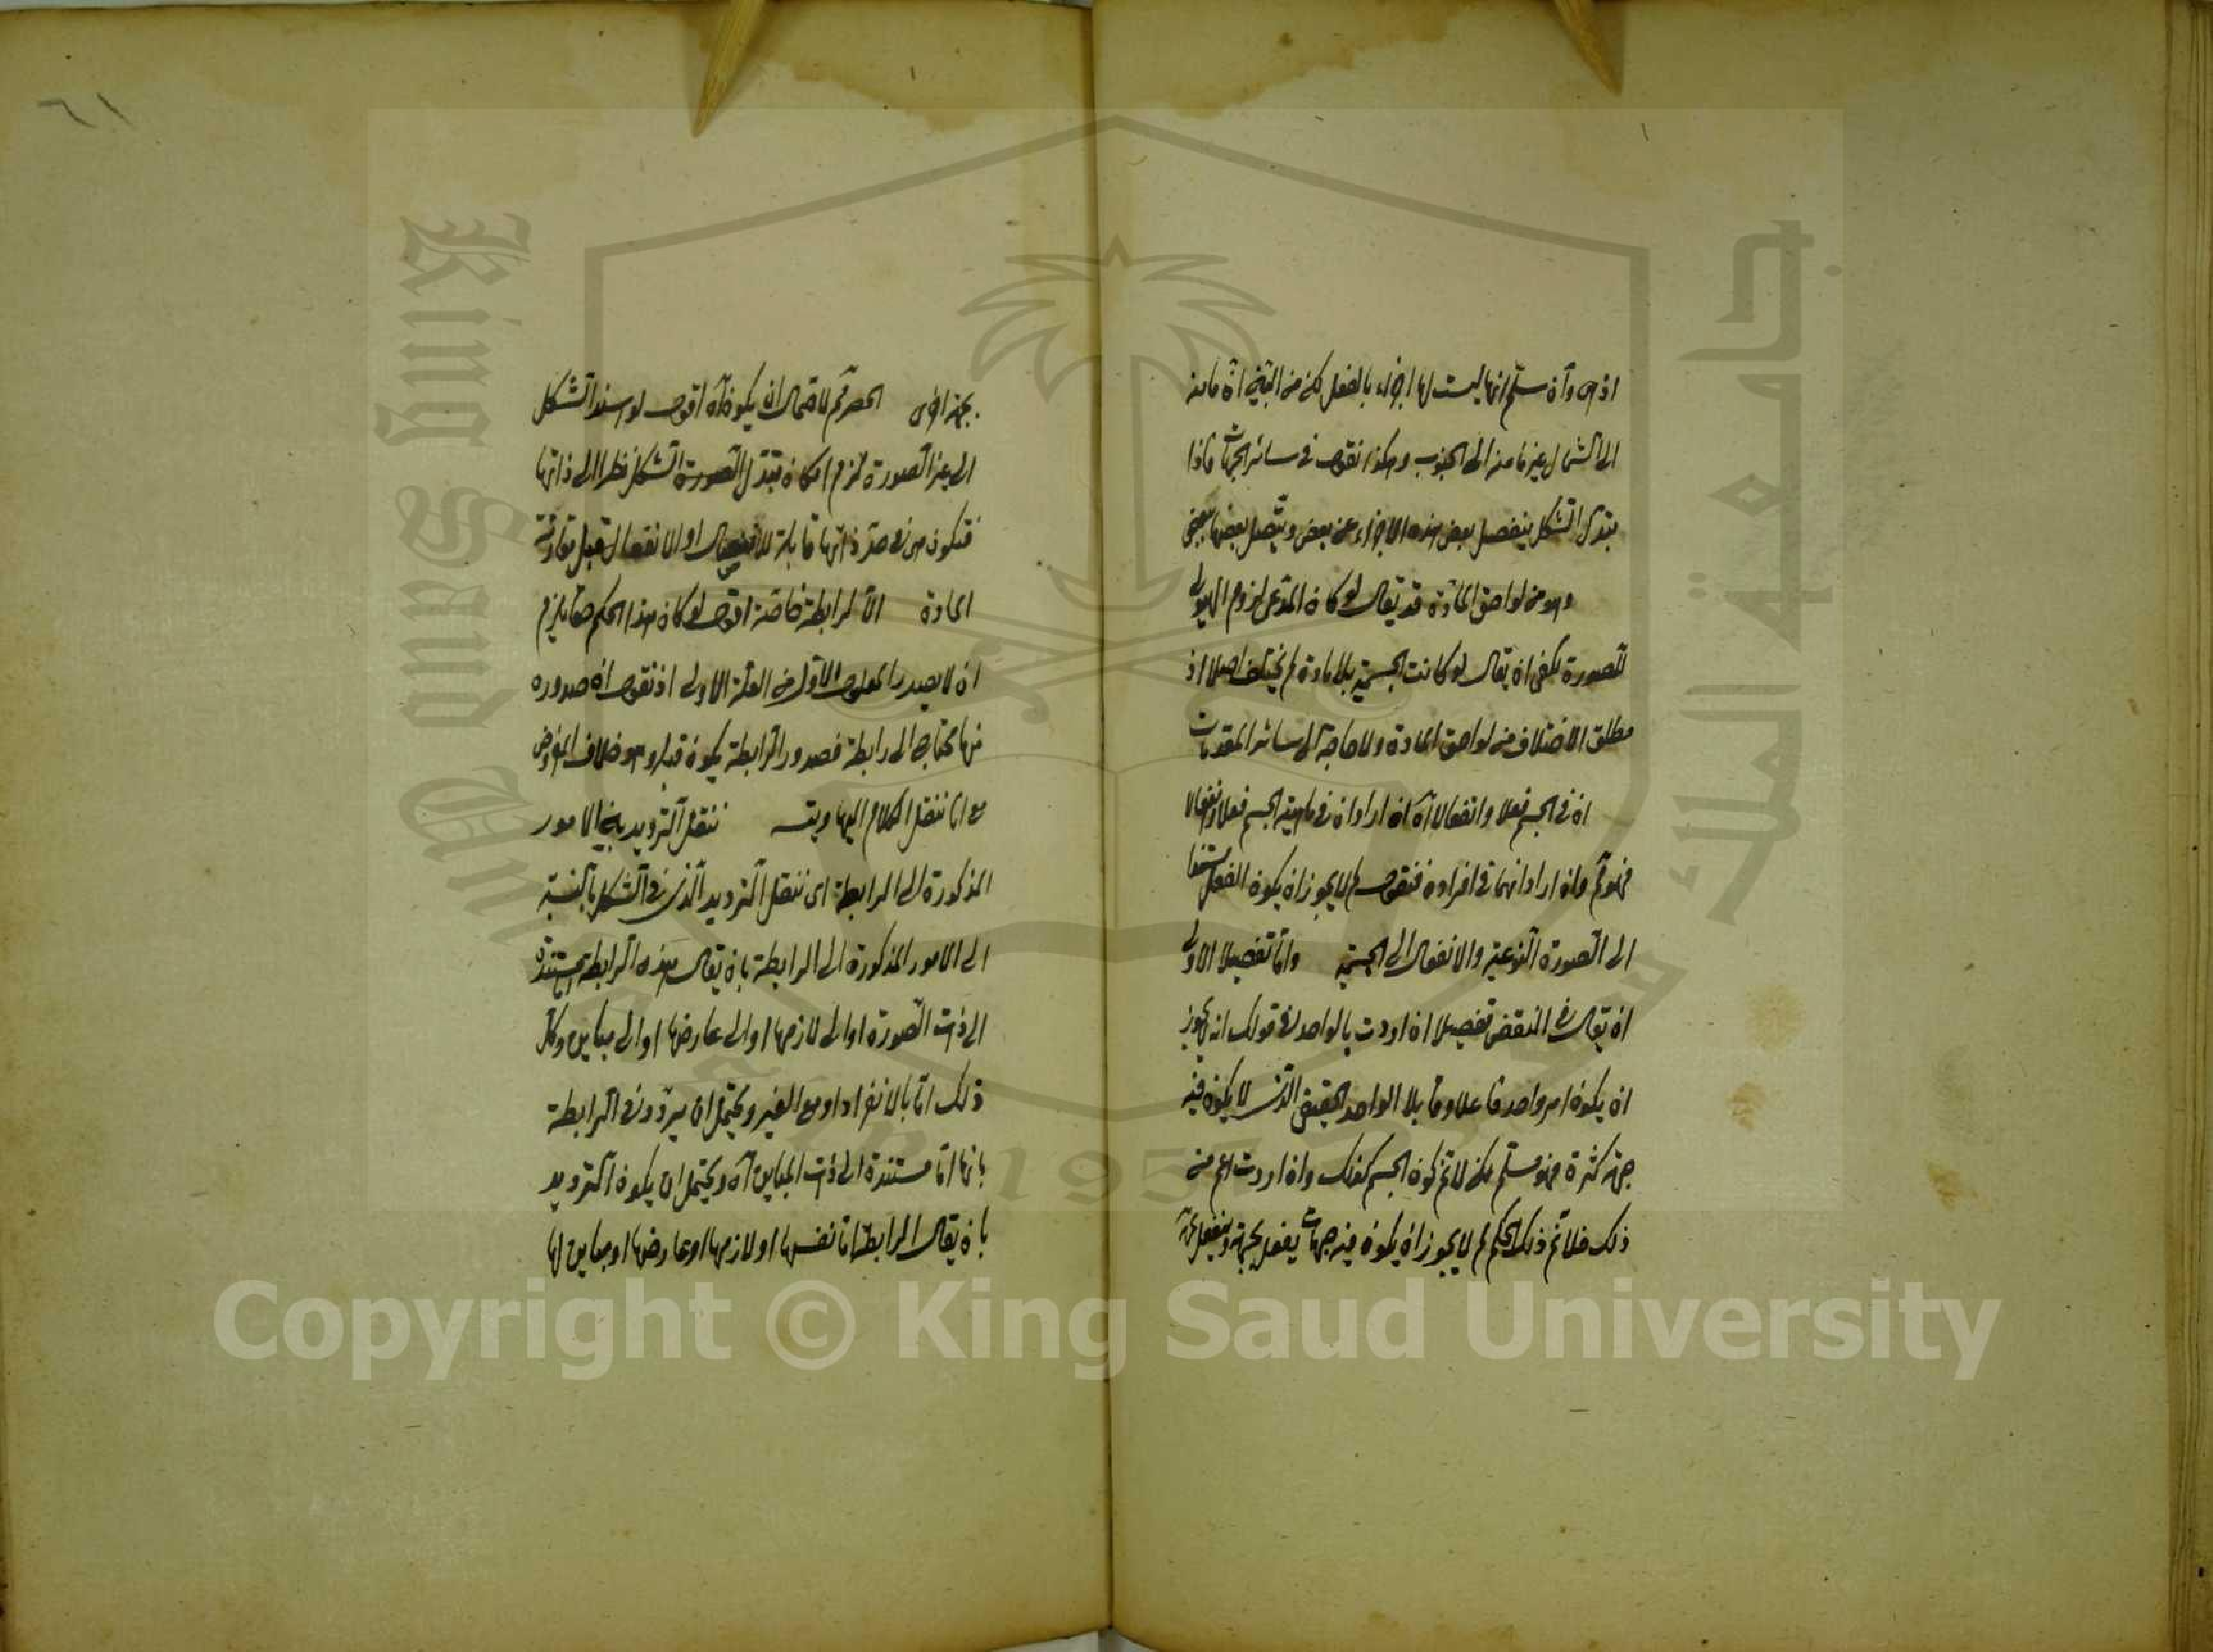 اخرى وان سلم انها ليست لها اجزاء بالفعل لكن من البين ان ما منه
الى الشمال غير ما منه الى الجنوب وهكذا نقول في سائر الجهات فاذا
يتبدل الشكل ينفصل بعض هذه الاجزاء عن بعض ويتصل بعضها ببعض
وهو من لواحق المادة قد يقال لو كان المدعى لزوم الهيولى
للصورة يكفي ان يقال لو كانت الجسمية بلا مادة لم يختلف اصلا اذ
مطلق الاختلاف من لواحق المادة ولا حاجة الى سائر المقدمات
ان في الجسم فعلا وانفعالا آه ان اراد ان في ماهية الجسم فعلا وانفعالا
فهو تم وان اراد انهما في افراده فنقول لم لا يجوز ان يكون الفعل مستندا
الى الصورة النوعية والانفعال الى الجسمية واما تفصيلا الاولى
ان يقال في النقض تفصيلا ان اردت بالواحد في قولك انه لا يجوز
ان يكون امر واحد فاعلا وقابلا الواحد الحقيقي الذي لا يكون فيه
جهة كثرة فهو مسلم لكن لا تم كون الجسم كذلك وان اردت اعم منه
ذلك فلا تم ذلك الحكم لم لا يجوز ان يكون فيه جهات يفعل بجهة وينفعل بجهة
بجهة اخرى الحصر تم لاحتمال ان يكون آه اقول لو استند الشكل
الى غير الصورة لزم امكان تبدل الصورة الشكل نظرا الى ذاتها
فتكون هي في حد ذاتها قابلة للانفصال او الانفعال قبل مقارنة
المادة الا لرابطة خاصة اقول لو كان هذا الحكم حقا يلزم
ان لا يصدر المعلول الاول من العلة الاولى اذ نقول ان صدوره
منها محتاج الى رابطة فصدور الرابطة يكون قبله وهو خلاف المفروض
مع انا ننقل الكلام اليها ويتسه ننقل الترديد بين الامور
المذكورة الى الرابطة اى ننقل الترديد الذي في الشكل بالنسبة
الى الامور المذكورة الى الرابطة بان يقال هذه الرابطة مستندة
الى ذات الصورة او الى لازمها او الى عارضها او الى مباين وكل
ذلك اما بالانفراد او مع الغير ويحتمل ان يردد في الرابطة
بانها اما مستندة الى ذات المباين آه ويحتمل ان يكون الترديد
بان يقال الرابطة اما نفسها او لازمها او عارضها او مباين لها
٦١
جامعة الملك سعود
King Saud University
1957
Copyright © King Saud University